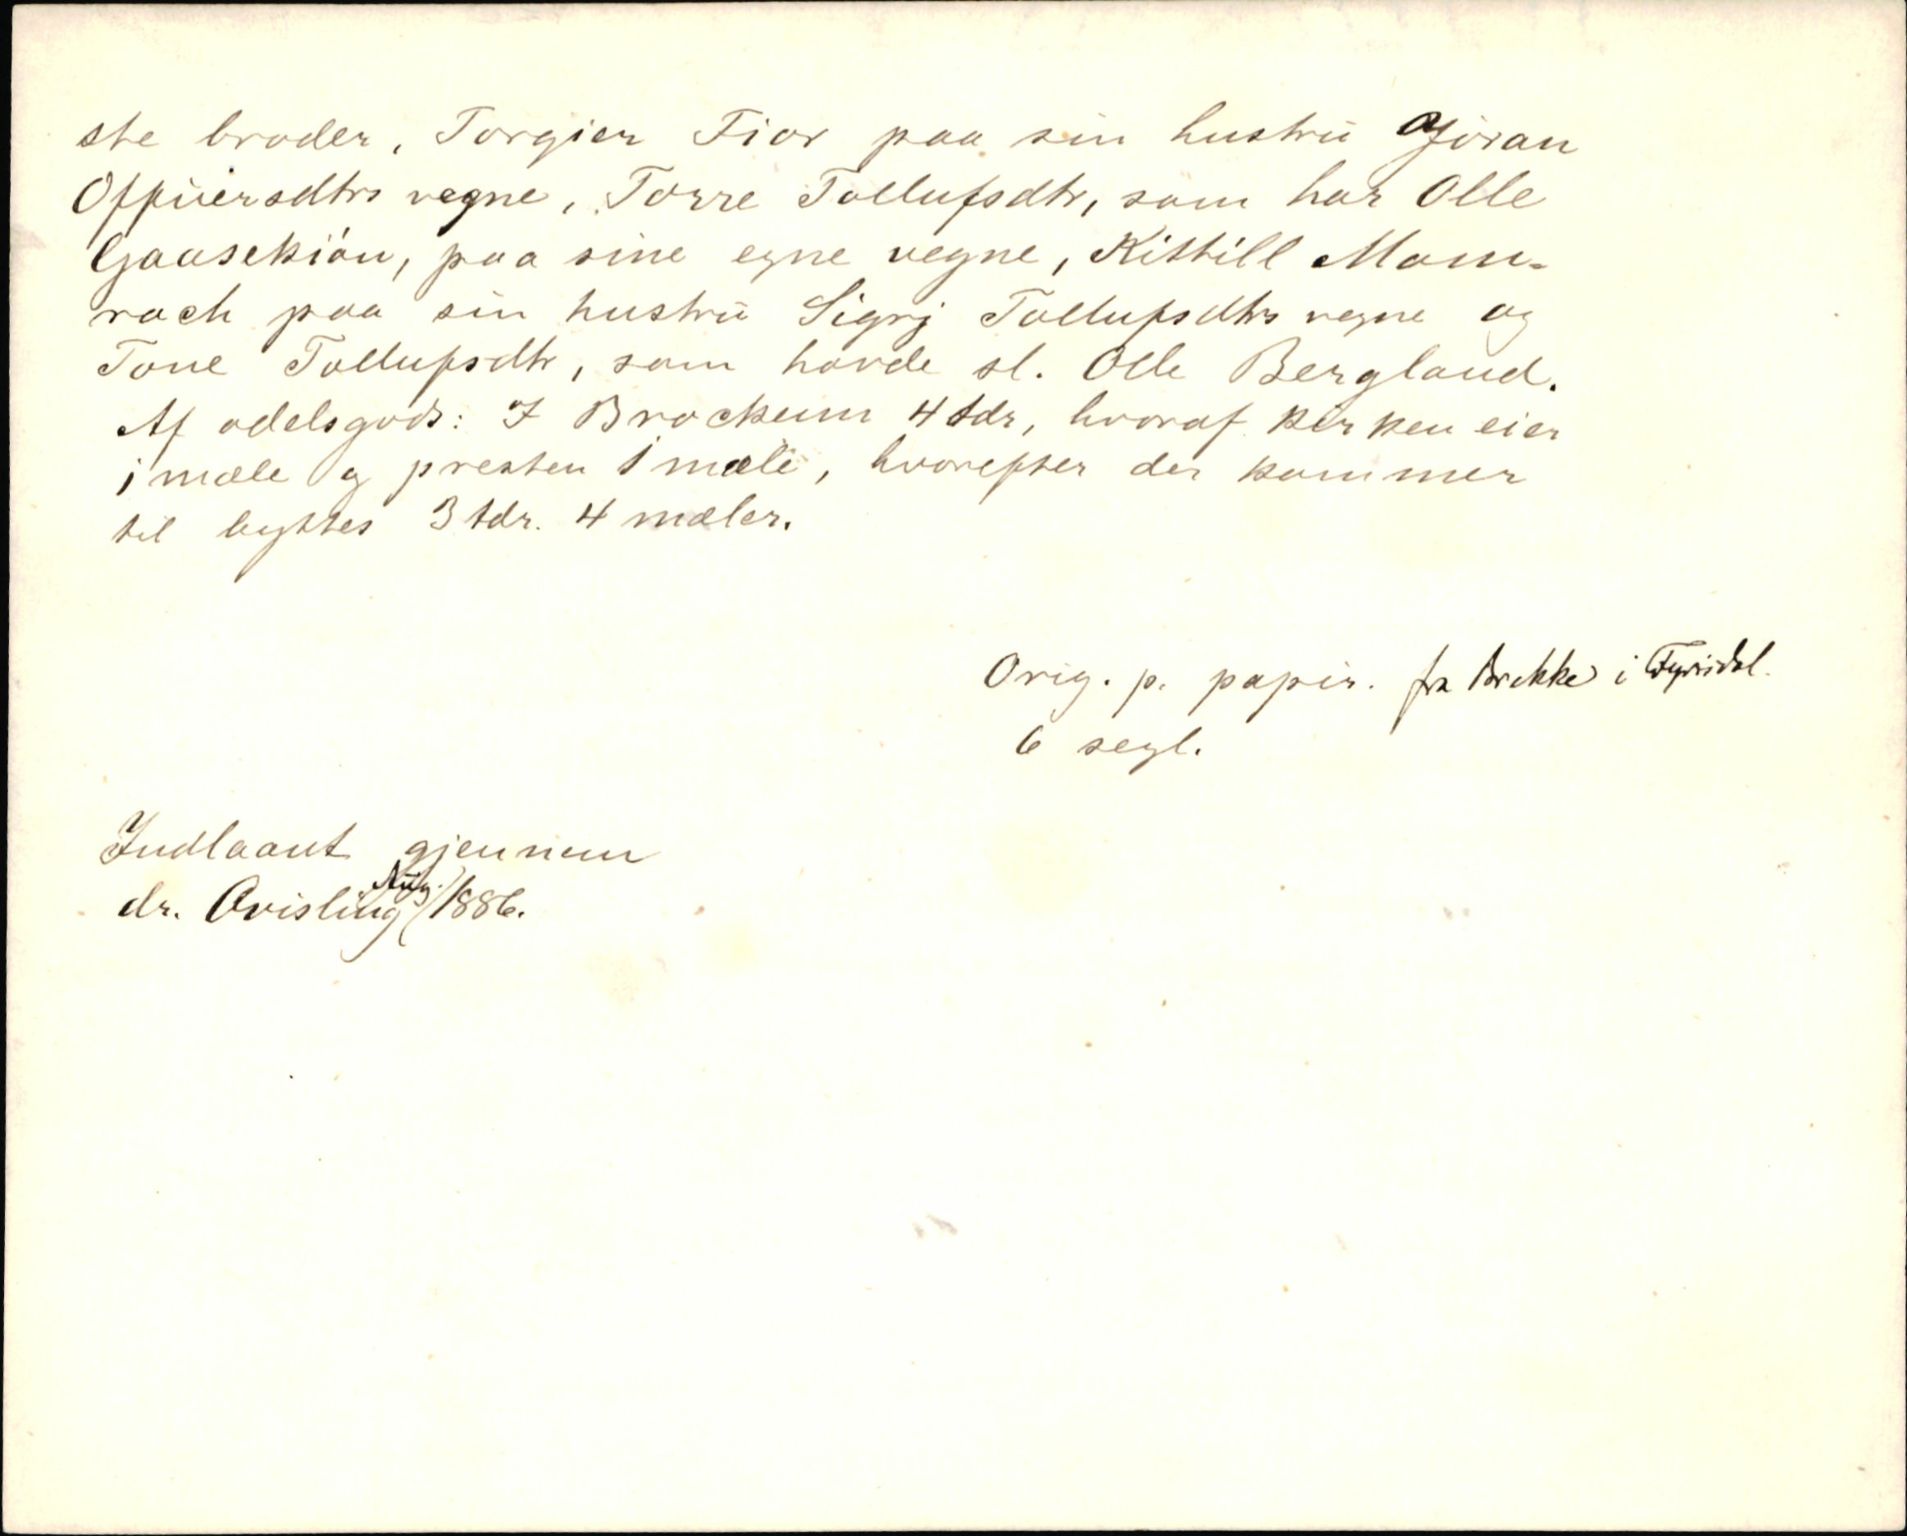 ste broder, Torgier Fior paa sin hustrü Giöran
Offüersdtrs vegne, Torre Tollufsdtr, som har Olle
Gaasekiön, paa sine egne vegne, Kittill Mom-
rach paa sin hustrü Sigrj Tollufsdtrs vegne og
Tone Tollufsdtr, som havde sl. Olle Bergland.
Af odelsgods: I Brockeun 4 tdr, hvoraf kirken eier
1 mæle og presten 1 mæle, hvorefter der kommer
til byttes 3 tdr. 4 mæler.
Orig. p. papir. fra Brekke i Fyrisdal.
6 segl.
Indlaant gjennem
dr. Qvisling Aug. 1886.